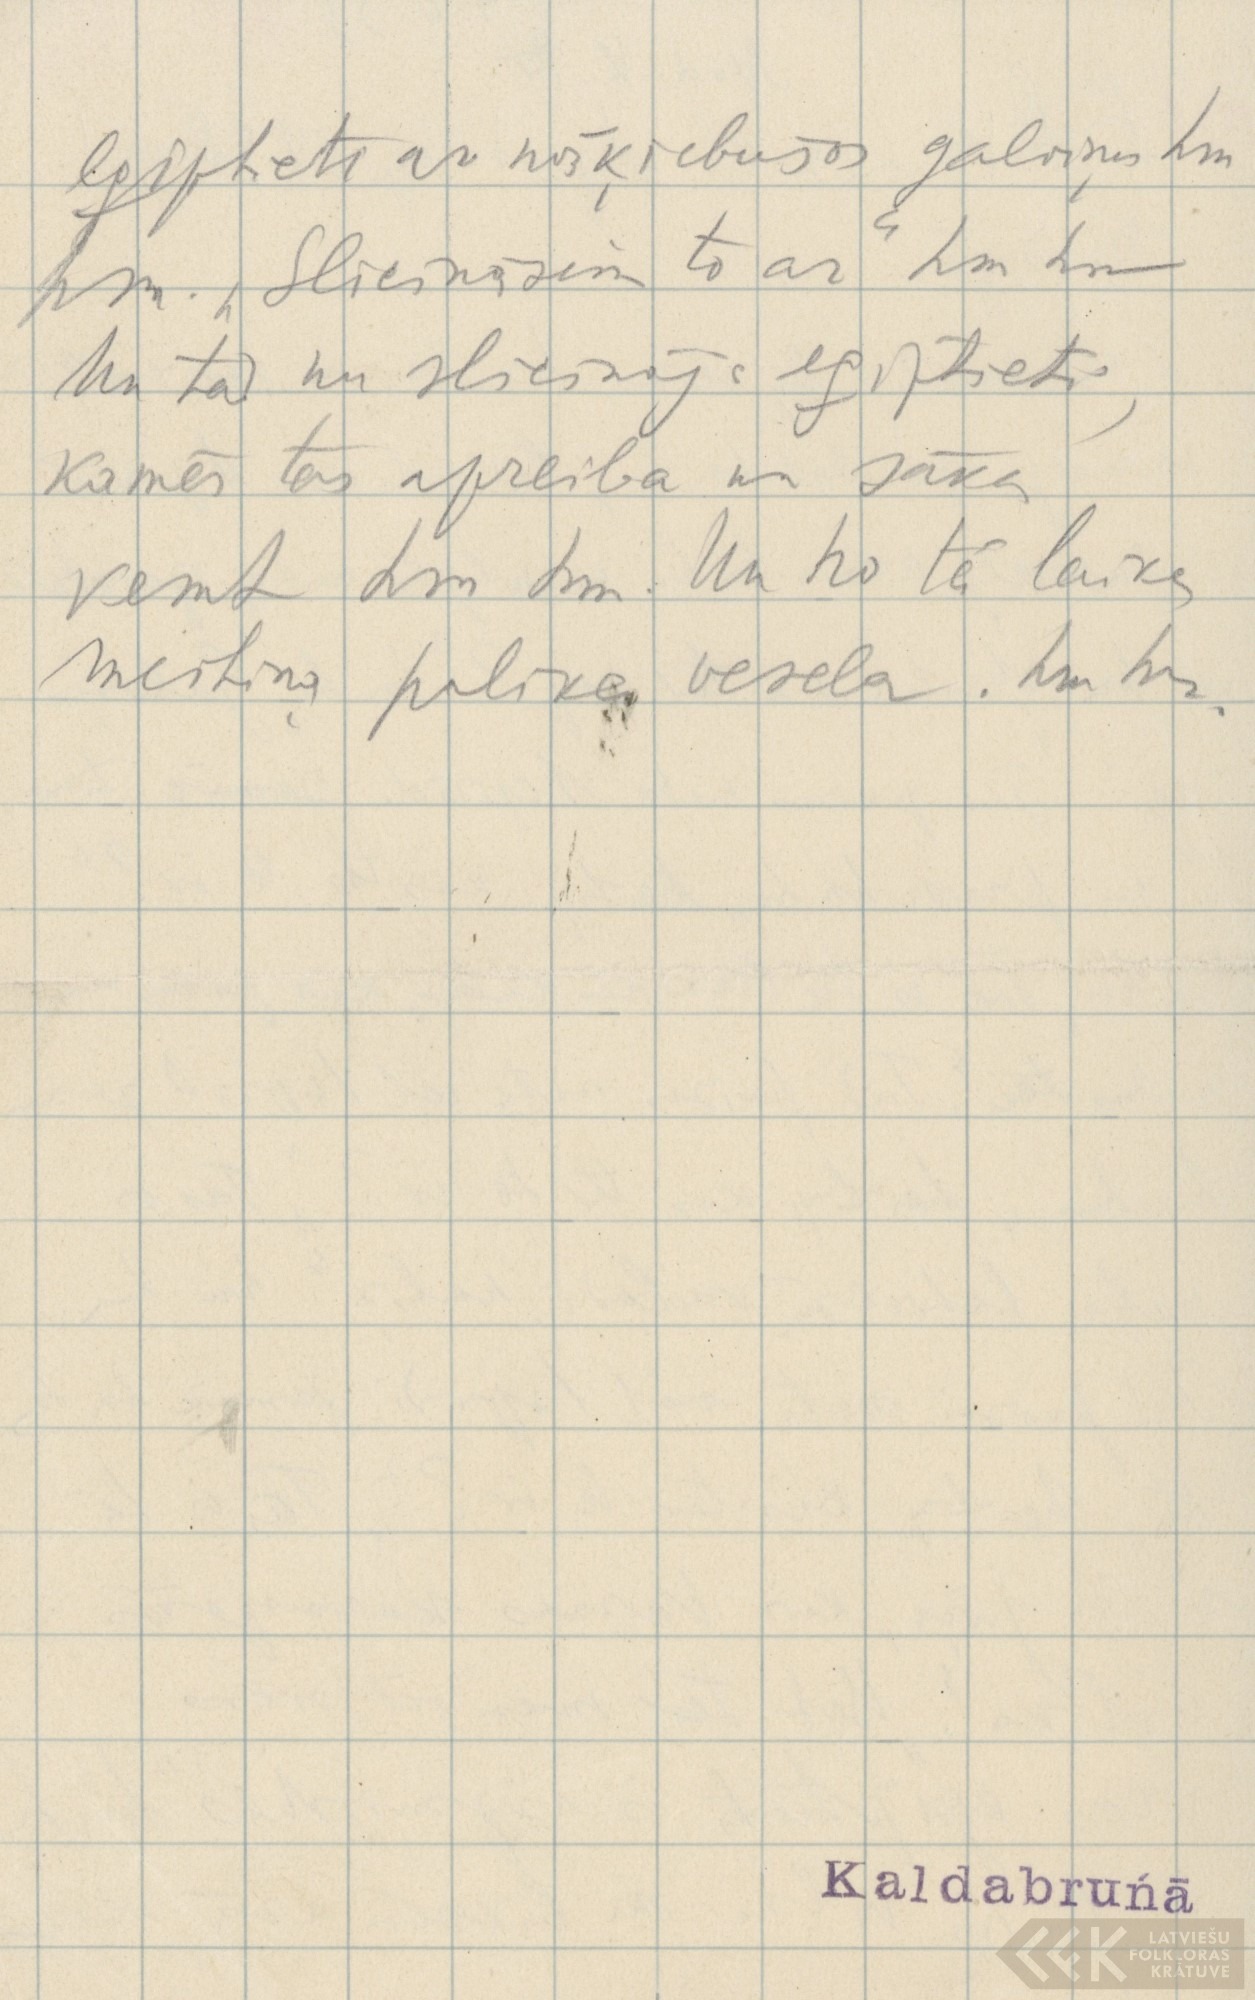 egiptieti ar nošķiebušos galviņu hm
hm. „Slicināsim to ar“ hm hm
Un tad nu slicināja egiptieti,
kamēr tas apreiba un sāka
vemt hm hm. Un no tā laika
meitiņa palika vesela. hm hm.
Kaldabruńā
LATVIEŠU
FOLKLORAS
KRĀTUVE